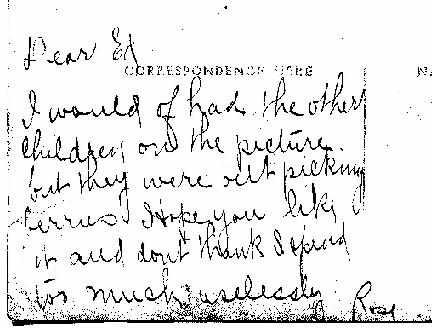 Dear Ed
CORRESPONDENCE HERE
I would of had the other
children on the picture.
but they were out picking
berries. Hope you like
it and dont thank I spend
to much uselessly